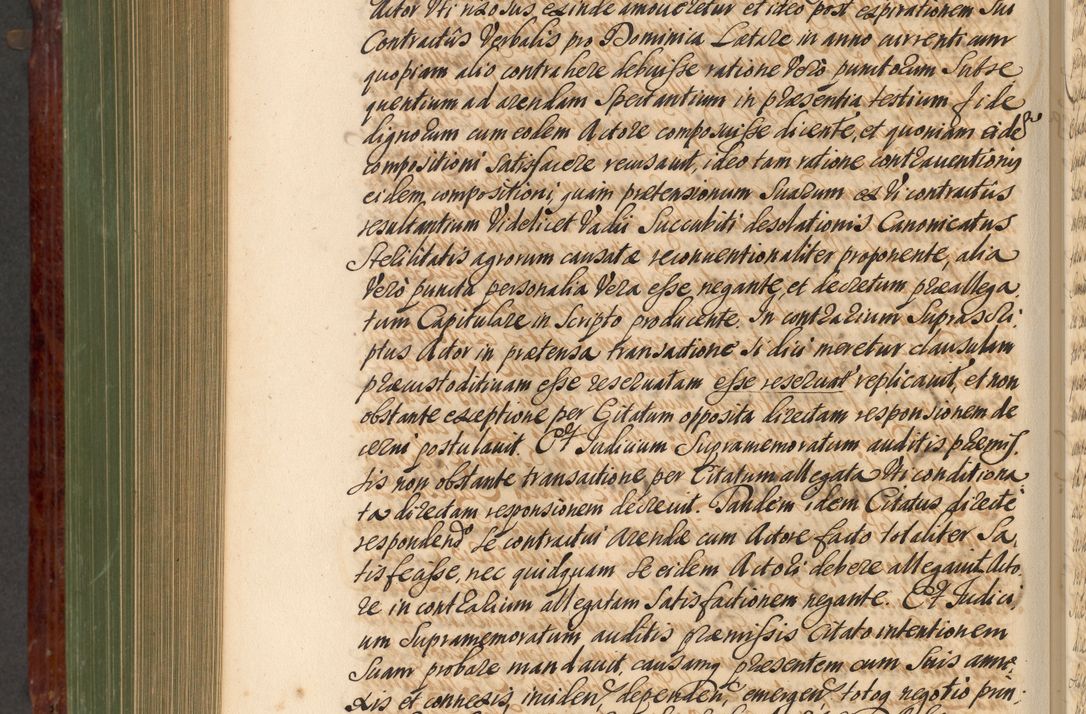 Actor Uti rixosus, exinde amoveretur et ideo post expirationem sui
Contractûs Verbalis pro Dominica Lætare in anno currenti cum
quopiam alio contrahere debuisse ratione Verò punctorum Subse
quentium ad arendam Spectantium in præsentia testium Fide
dignorum cum eodem Actore composuisse dicente, et quoniam eide
compositioni Satisfacere recusavit, ideo tam ratione contraventionis
eidem compositioni, quam prætensionum Suarum ex Vi contractûs
resultantium Videlicet Vadii Succubiti desolationis Canonicatus
Sterilitatis agrorum causatæ reconventionaliter proponente, alia
Verò puncta personalia Vera esse negante, et decretum præallega
tum Capitulare in Scripto producente. In contrarium Suprascri
ptus Actor in prætensa transactione si dici meretur clausulam
præcustoditivam esse reservatam esse reservat replicavit, et non
obstante exceptione per Citatum opposita directam responsionem de
cerni postulavit. Et Judicium Supramemoratum auditis præmis
sis non obstante transactione per Citatum allegata Uti conditiona
ta directam responsionem decrevit. Tandem idem Citatus directè
respondend se contractui arendæ cum Actore facto totaliter Sa
tisfecisse, nec quidquam se eidem Actori debere allegavit Acto
re in contrarium allegatam Satisfactionem negante. Et Judici
um Supramemoratum, auditis præmissis Citato intentionem
Suam probare mandavit, causamq præsentem cum Suis anne
xis et connexis, inciden, dependen, emergen, totoq negotio prin